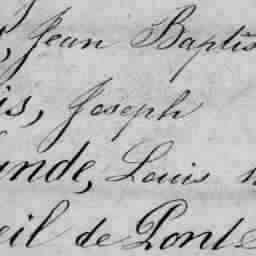 , Jean Baptis
is, Joseph
ande, Louis
eil de Pont